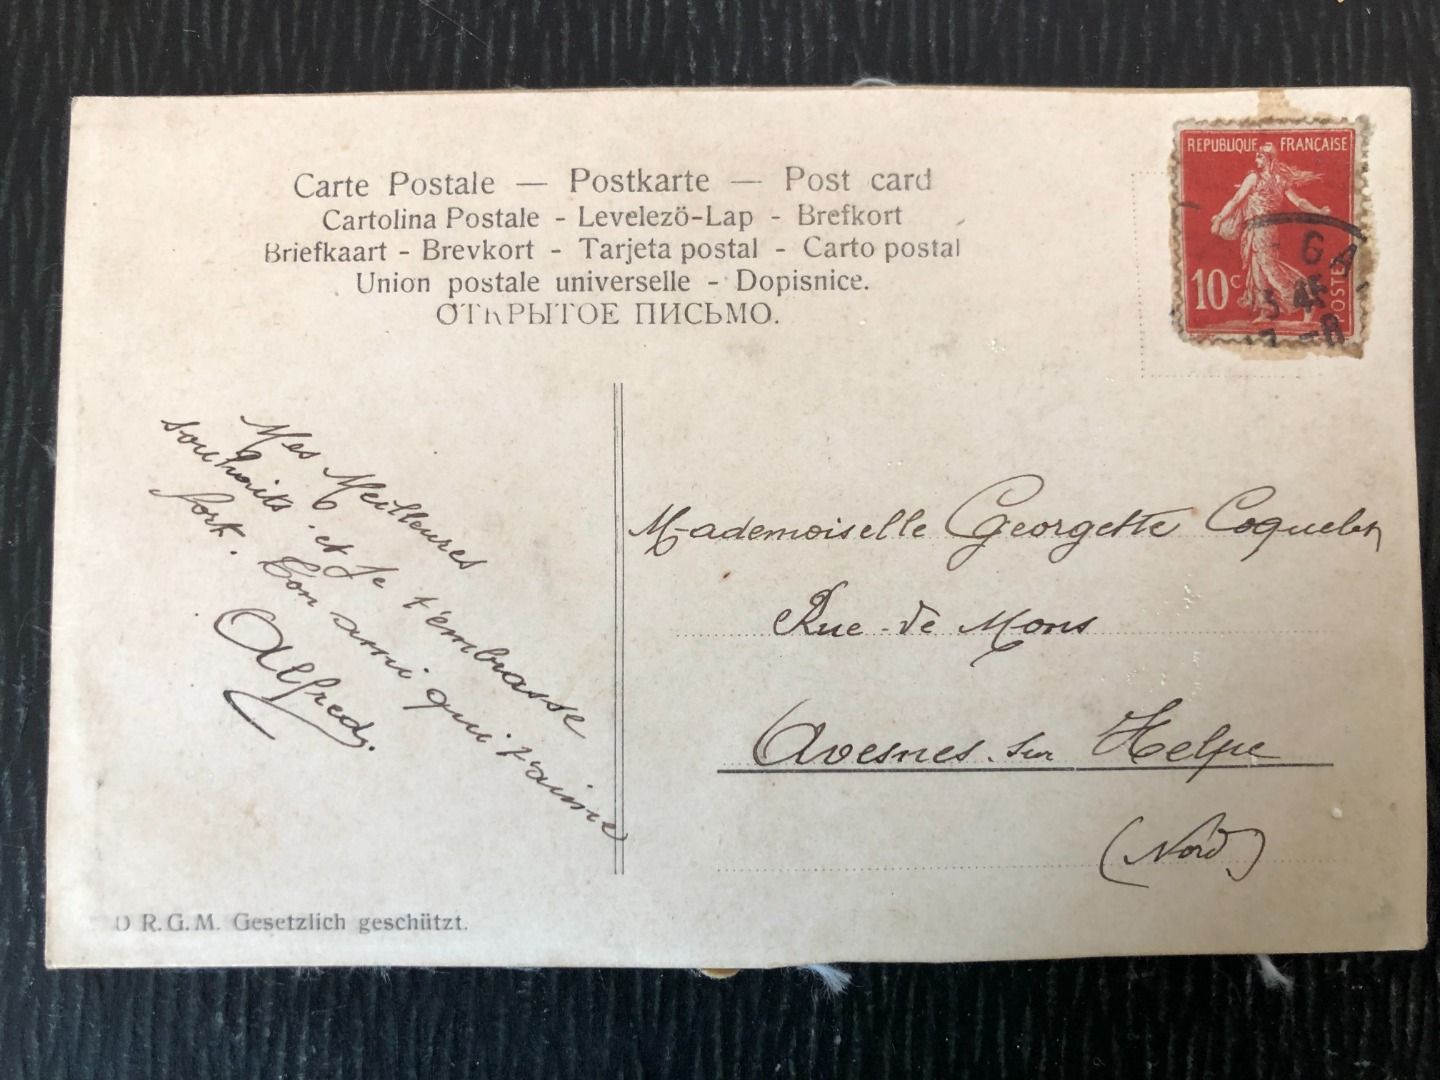 Carte Postale — Postkarte — Post card
Cartolina Postale - Levelezö-Lap - Brefkort
Briefkaart - Brevkort - Tarjeta postal - Carto postal
Union postale universelle - Dopisnice.
ОТКРЫТОЕ ПИСЬМО.
REPUBLIQUE FRANÇAISE
10c
POSTES
Mes Meilleures
souhaits. et Je t'embrasse
fort. Ton ami qui t'aime
Alfred.
Mademoiselle Georgette
Rue de Mons
Avesnes sur Helpe
(Nord)
D R.G.M. Gesetzlich geschützt.